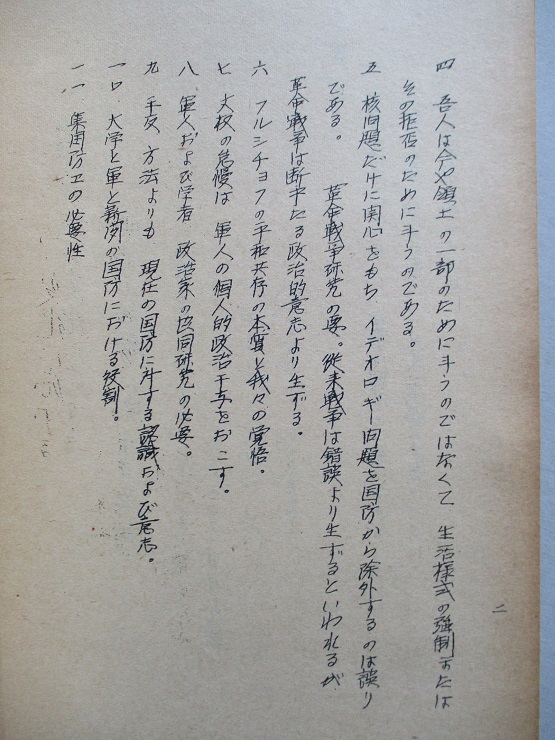 四 吾人は今や領土の一部のために斗うのではなくて 生活様式の強制または
その拒否のために斗うのである。
五 核問題だけに関心をもち イデオロギー問題を国防から除外するのは誤り
である。 革命戦争研究の要。従来戦争は錯誤より生ずるといわれるが
革命戦争は断乎たる政治的意志より生ずる。
六 フルシチョフの平和共存の本質と我々の覚悟。
七 文权の怠慢は 軍人の個人的政治干与をおこす。
八 軍人および学者 政治家の協同研究の必要。
九 手段 方法よりも 現在の国防に対する認識および意志。
一〇 大学と軍と新例の国防における役割。
一一 集団防卫の必要性
二